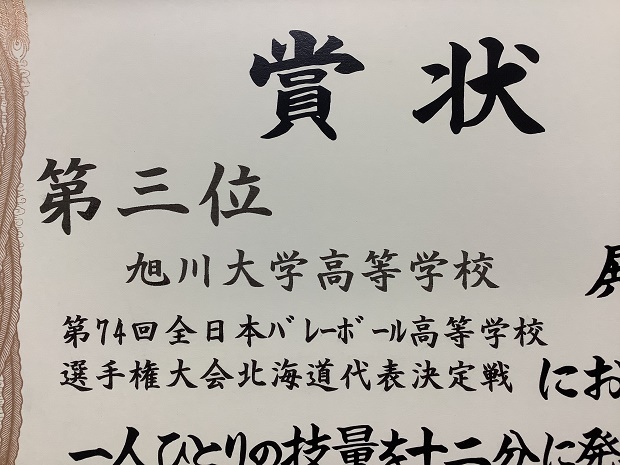 賞状
第三位
旭川大学高等学校
第74回全日本バレーボール高等学校
選手権大会北海道代表決定戦 にお
一人ひとりの技量を十二分に発